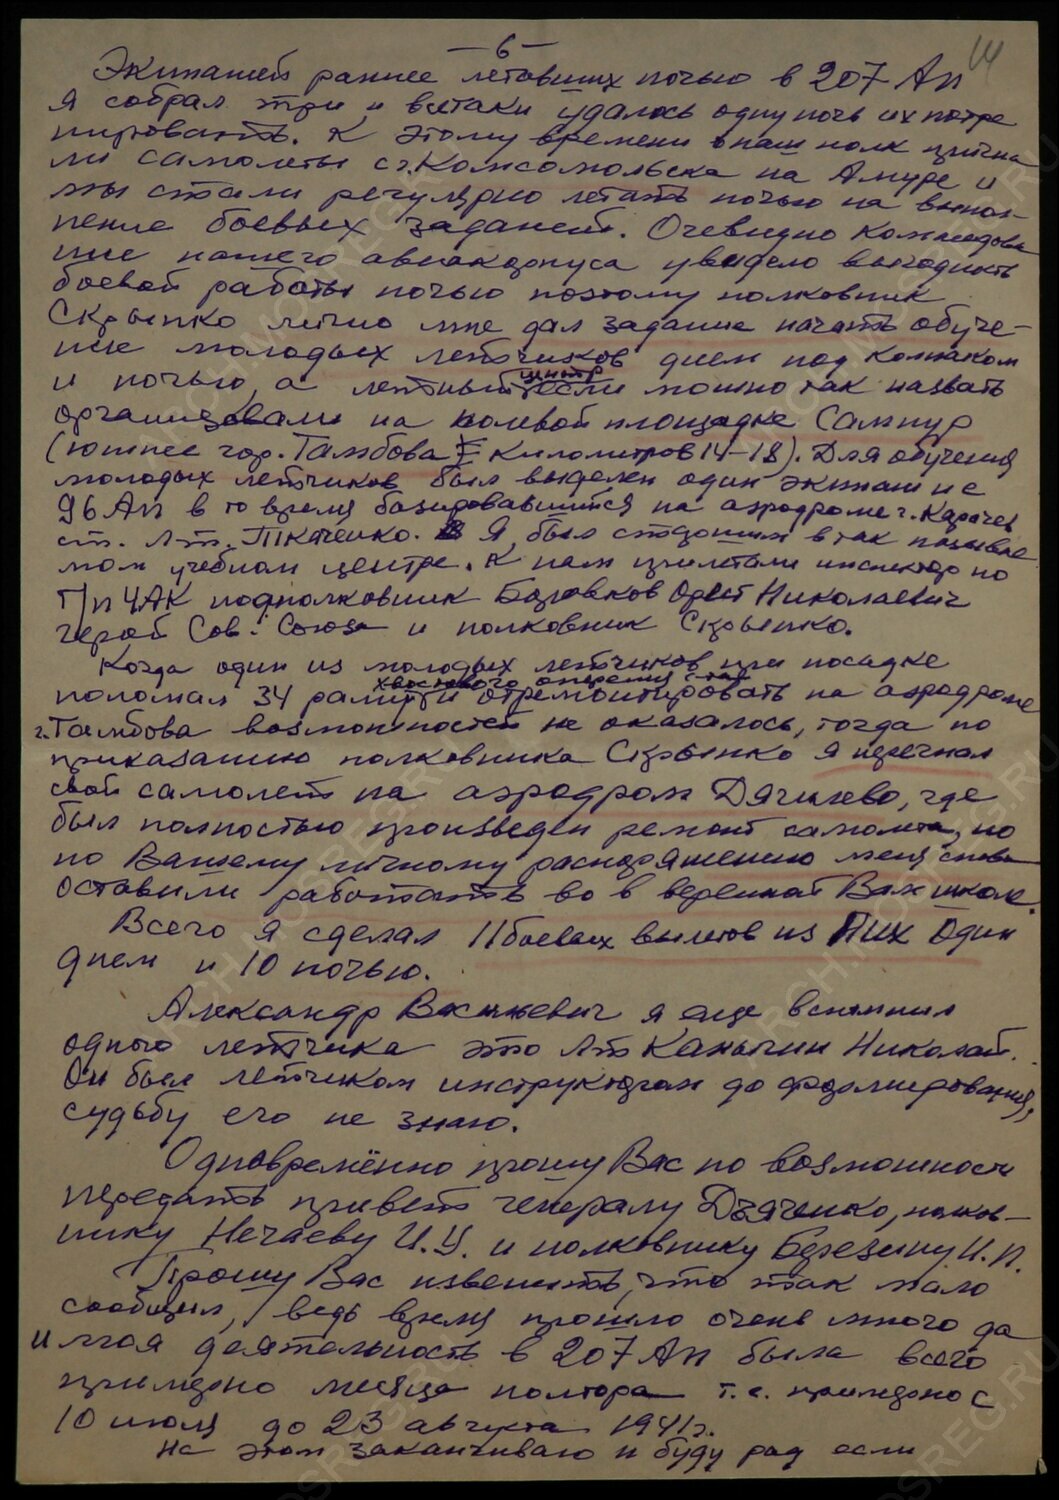 — 6 —
14
Экипажей раннее летавших ночью в 207 Ап
я собрал три и вcетаки удалось одну ночь их потре
нировать. К этому времени в наш полк пригна
ли самолеты с г. Комсомольска на Амуре и
мы стали регулярно летать ночью на выпол-
нение боевых заданей. Очевидно командова
ние нашего авиакорпуса увидело выгодность
боевой работы ночью поэтому полковник
Скрыпко лично мне дал задание начать обуче-
ние молодых летчиков днем под колпаком
и ночью, а летный центр если можно так назвать
организовали на полевой площадке Сампур
(южнее гор. Тамбова километров 14-18). Для обучения
молодых летчиков был выделен один экипаж и с
96 Ап в то время базировавшийся на аэродроме г. Карачев
ст. л-т. Ткаченко. Я был старшим в так называе
мом учебном центре. К нам прилетали инспектор по
т/п 4АК подполковник Боровков Орест Николаевич
герой Сов. Союза и полковник Скрыпко.
Когда один из молодых летчиков при посадке
поломал 34 раму хвостового оперения то отремонтировать на аэродроме
г. Тамбова возможностей не оказалось, тогда по
приказанию полковника Скрыпко я перегнал
свой самолет на аэродром Дягилево, где
был полностью произведен ремонт самолета, но
по Вашему личному распоряжению меня снова
оставили работать во вверенной Вам школе.
Всего я сделал 11 боевых вылетов из них один
днем и 10 ночью.
Александр Васильевич я еще вспомнил
одного летчика это л-т Каныгин Николай.
Он был летчиком инструктором до формирования,
судьбу его не знаю.
Одновременно прошу Вас по возможности
передать привет генералу Дьяченко, полков-
нику Нечаеву И.У. и полковнику Березину И.П.
Прошу Вас извенить, что так мало
сообщил, ведь время прошло очень много да
и моя деятельность в 207 Ап была всего
примерно месяца полтора т.е. примерно с
10 июля до 23 августа 1941г.
На этом заканчиваю и буду рад если